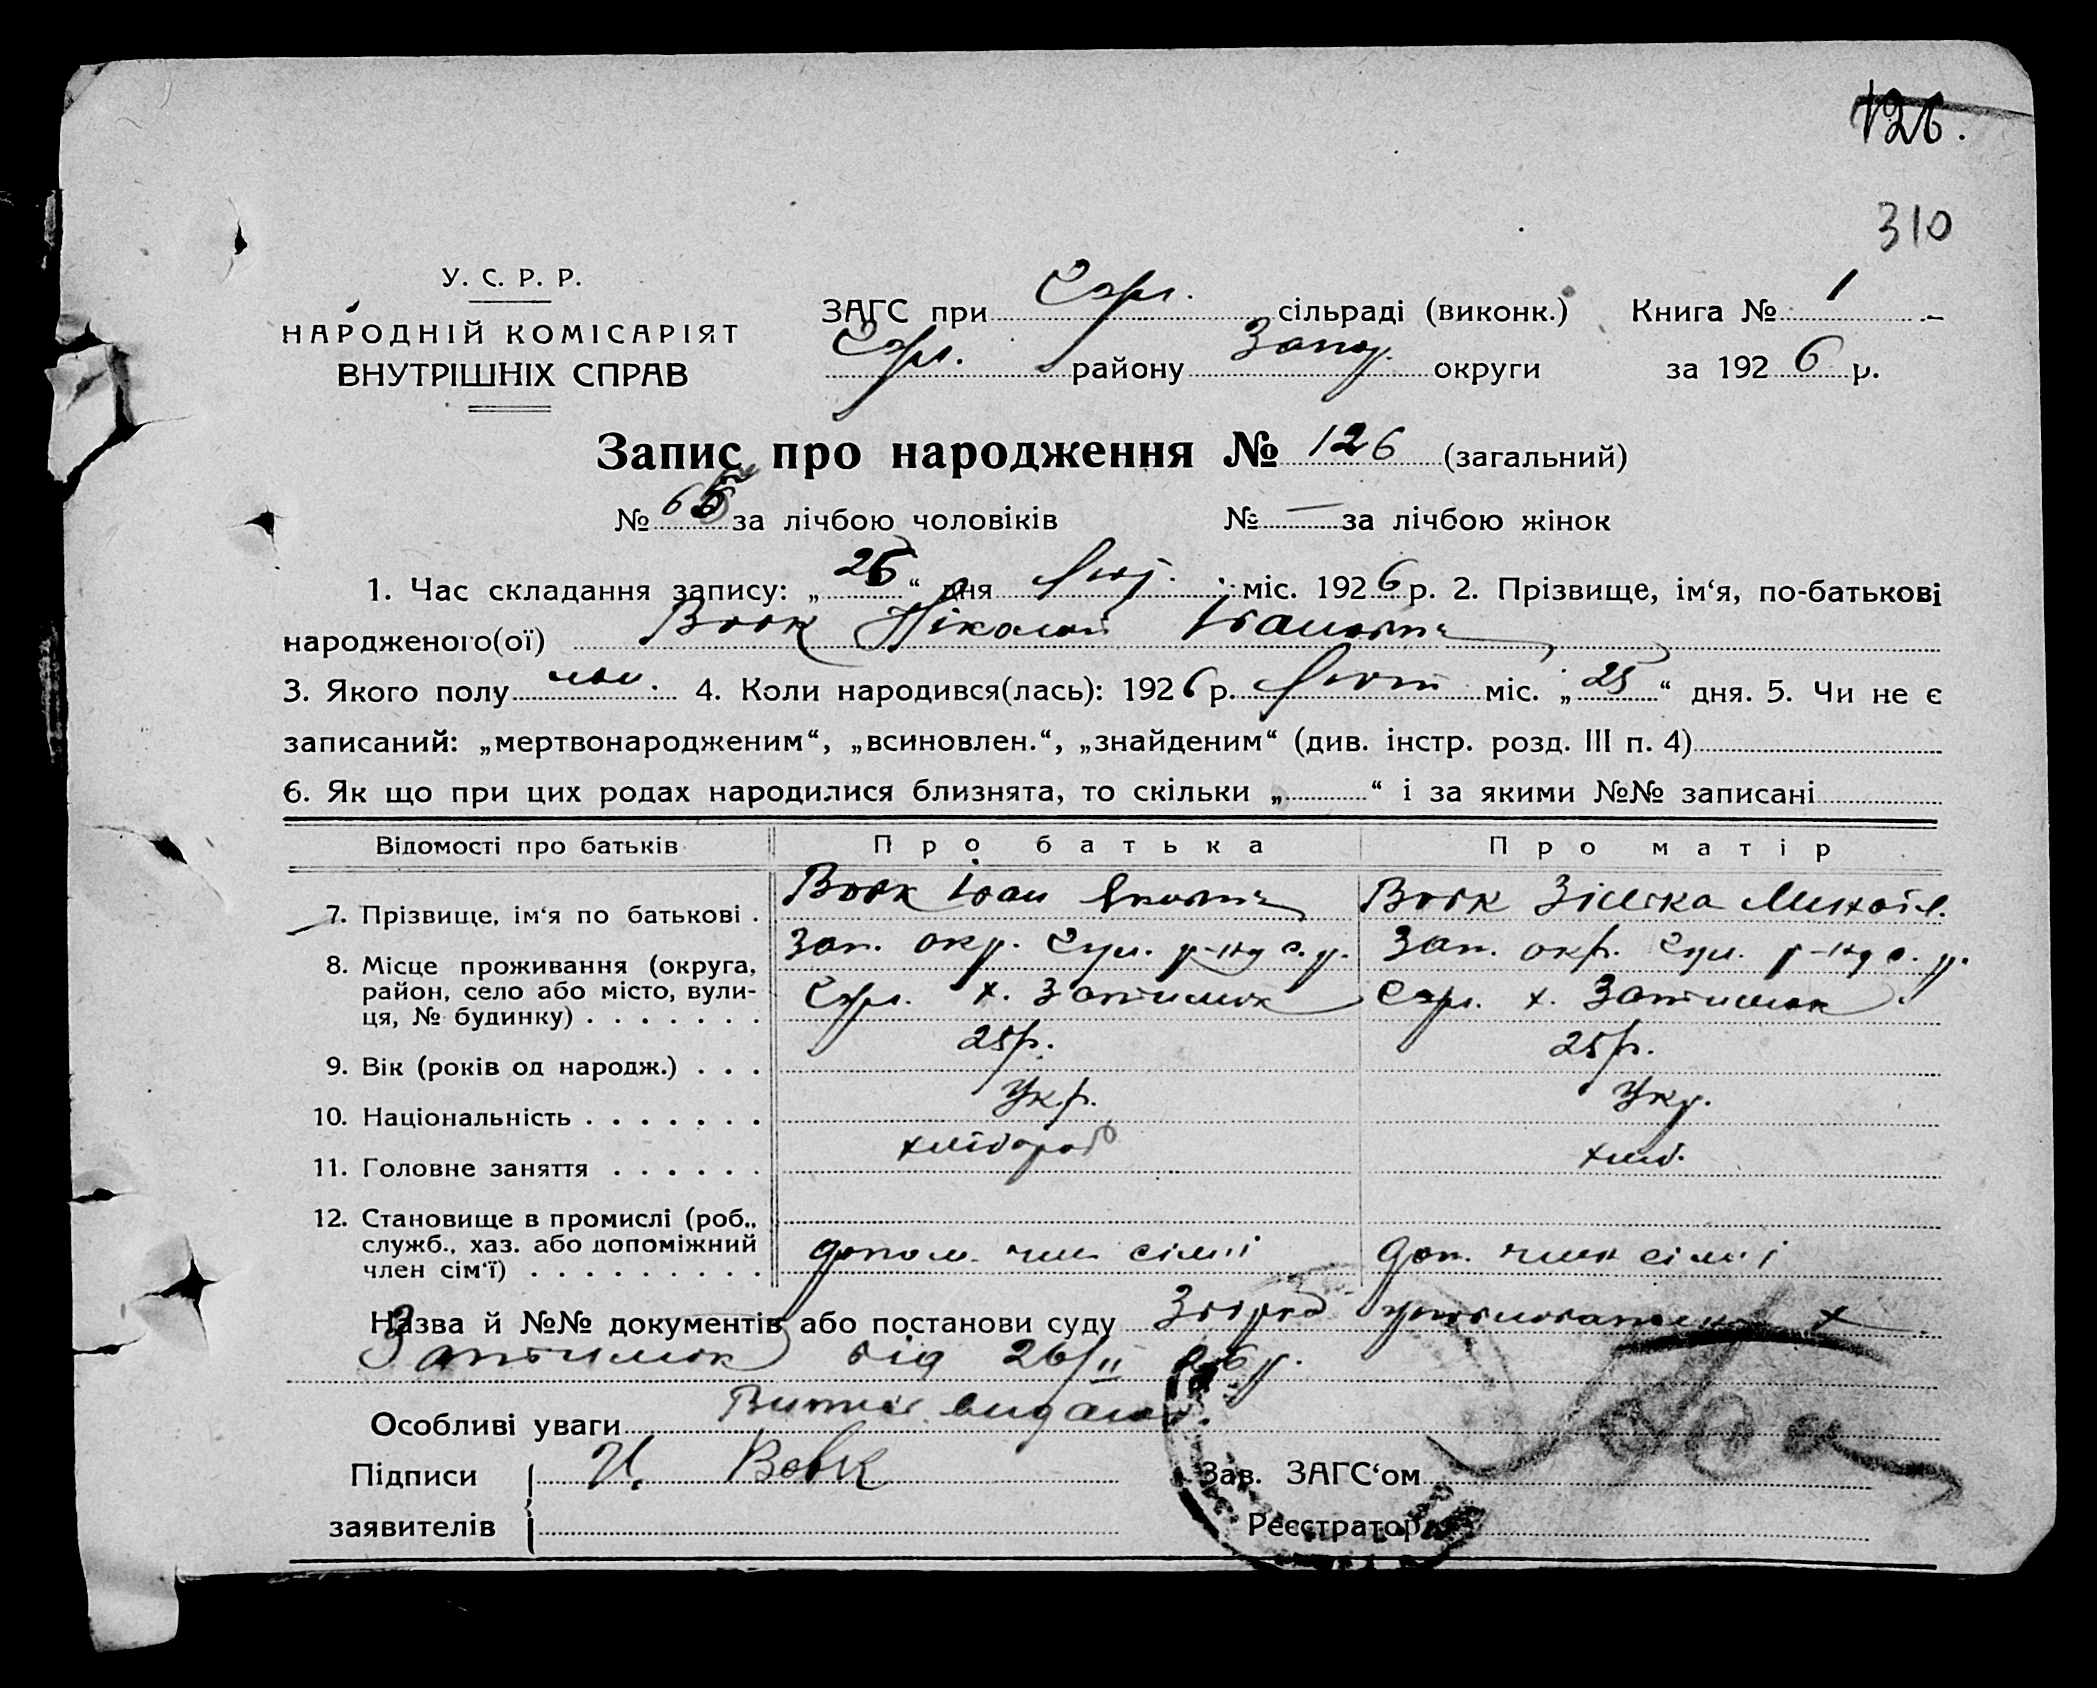 126.
310
У. С. Р. Р.
НАРОДНІЙ КОМІСАРІЯТ
ВНУТРІШНІХ СПРАВ
ЗАГС при сільраді (виконк.) Книга № 1
району Запор. округи за 1926 р.
Запис про народження № 126 (загальний)
№ 65 за лічбою чоловіків № — за лічбою жінок
1. Час складання запису: „26“ дня Лют. міс. 1926 р. 2. Прізвище, ім‘я, по-батькові
народженого(ої) Вовк Ніколай Іванович
3. Якого полу чол. 4. Коли народився(лась): 1926 р. Лют міс. „25“ дня. 5. Чи не є
записаний: „мертвонародженим“, „всиновлен.“, „знайденим“ (див. інстр. розд. III п. 4)
6. Як що при цих родах народилися близнята, то скільки „ “ і за якими №№ записані
Відомості про батьків Про батька Про матір
7. Прізвище, ім‘я по батькові . Вовк Іван Вовк Михайл.
8. Місце проживання (округа, Зап. окр. р-ну с. р. Зап. окр. р-ну с. р.
район, село або місто, вули- х. Затишок х. Затишок
ця, № будинку) . . . . . . .
9. Вік (років од народж.) . . . 25 р. 25 р.
10. Національність . . . . . . . Укр. Укр.
11. Головне заняття . . . . . . хлібороб хліб.
12. Становище в промислі (роб.,
служб., хаз. або допоміжний допом. член сімї доп. член сімї
член сім‘ї) . . . . . . . . .
Назва й №№ документів або постанови суду х
Затишок від 26/II 26 р.
Особливі уваги Витяг видано.
Підписи И. Вовк Зав. ЗАГС‘ом
заявителів Реєстратор